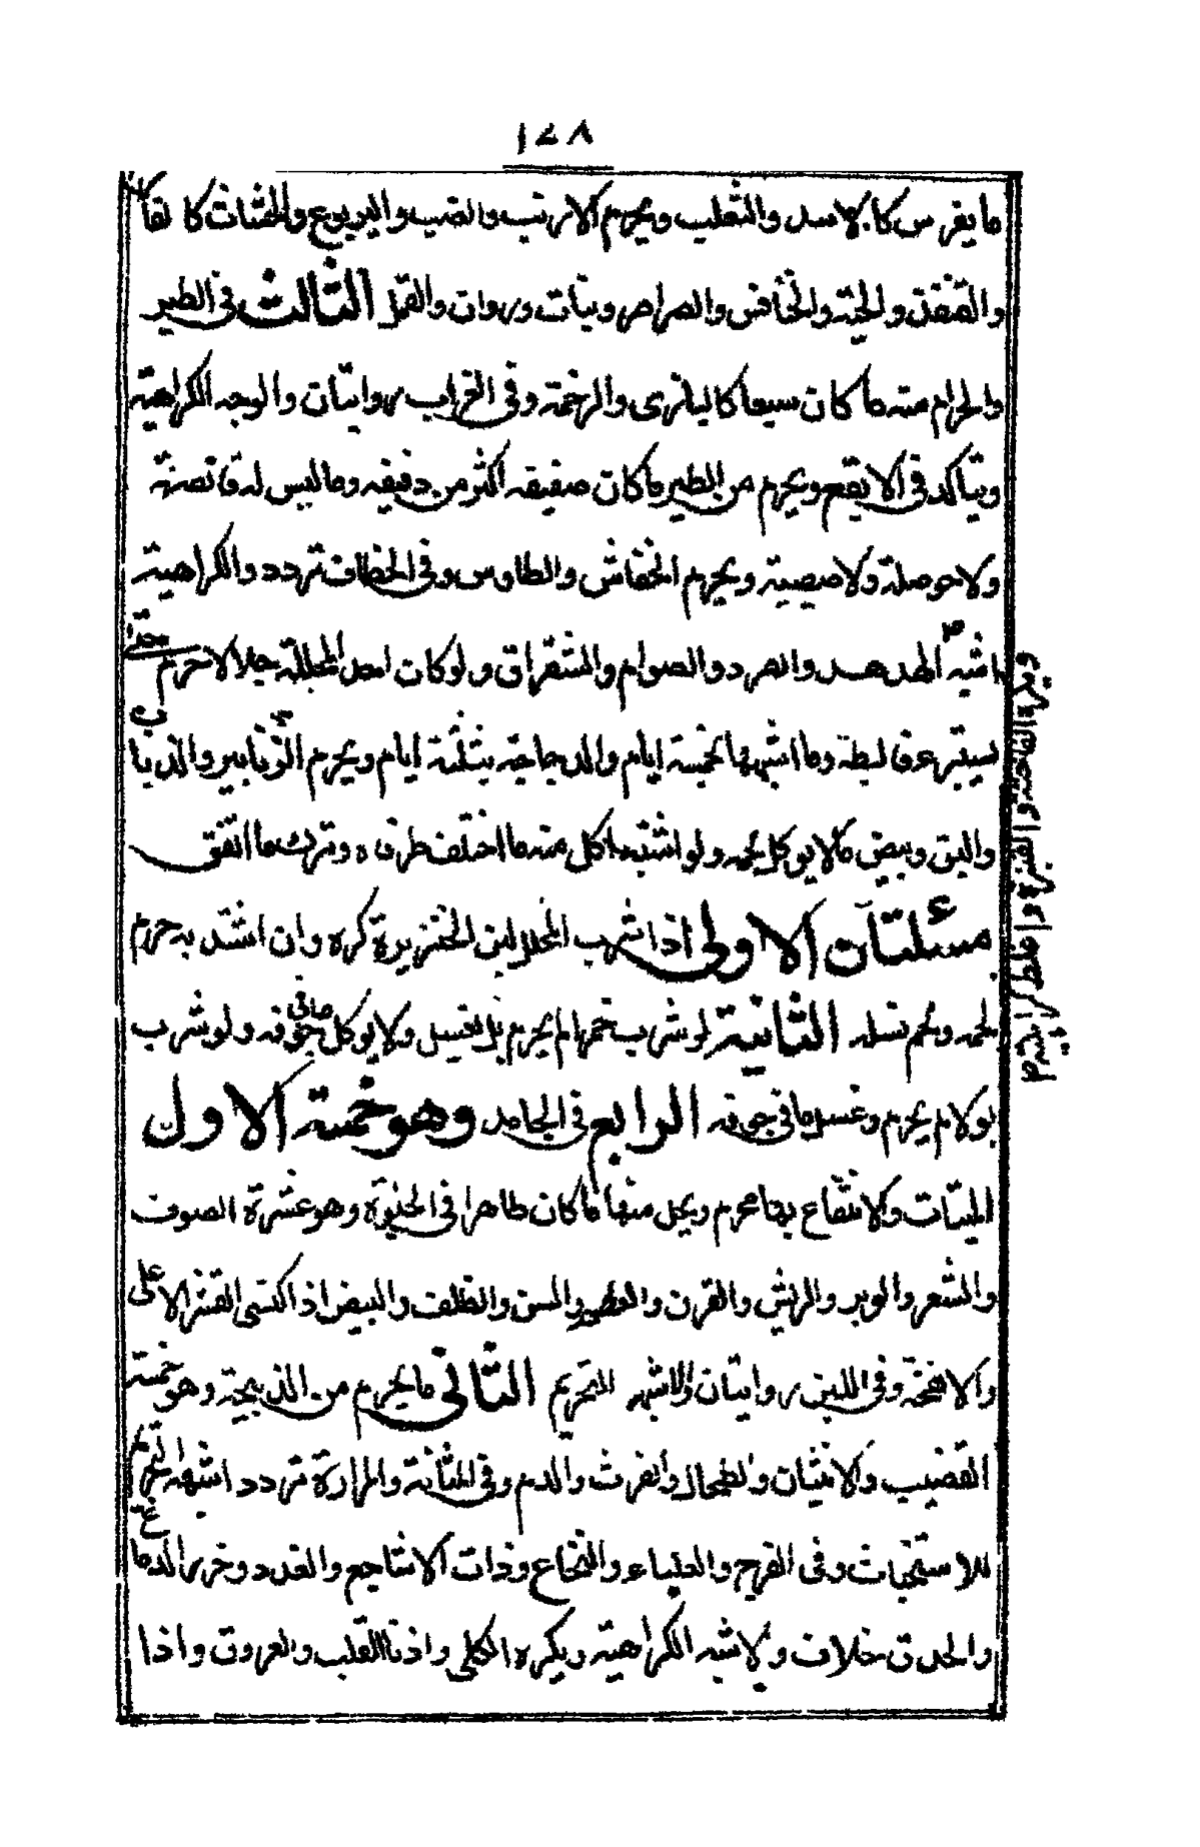 ١٧٨
ما يفرس كالاسد والثعلب ويحرم الارنب والضب واليربوع والحشات كالفا
والقنفذ والحية والخنافس والصراصر وبنات وردان والقمل الثالث في الطير
والحرام منه ما كان سبعا كالبازى والرخمة وفي الغراب روايتان والوجه الكراهية
ويتأكد في الابقع ويحرم من الطير ما كان صفيفه اكثر من دفيفه وما ليس له قانصة
ولا حوصلة ولا صيصية ويحرم الخفاش والطاوس وفي الخطاف تردد والكراهية
اشبه الهدهد والصرد والصوام والشقراق ولو كان احد المحللة جلالا حرم حتى
يستبرء فالبطة وما اشبهها بخمسة ايام والدجاجة بثلثة ايام ويحرم الزنابير والذباب
والبق وبيض ما لا يوكل لحمه ولو اشتبه اكل منه ما اختلف طرفاه وترك ما اتفق
مسئلتان الاولى اذا شرب المحلل لبن الخنزيرة كره وان اشتد به حرم
لحمه ولحم نسله الثانية لو شرب خمرا لم يحرم بل يغسل ولا يوكل ما في جوفه ولو شرب
بولا لم يحرم وغسل ما في جوفه الرابع في الجامد وهو خمسة الاول
الميتات والانتفاع بها محرم ويحل منها ما كان طاهرا في الحيوة وهو عشرة الصوف
والشعر والوبر والريش والقرن والعظم والسن والظلف والبيض اذا اكتسى القشر الاعلى
والانفحة وفي اللبن روايتان والاشبه التحريم الثاني ما يحرم من الذبيحة وهو خمسة
القضيب والانثيان والطحال والفرث والدم وفي المثانة والمرارة تردد اشبهه التحريم
للاستخباث وفي الفرج والعلباء والنخاع وذات الاشاجع والغدد وخرزة الدماغ
والحدق خلاف والاشبه الكراهية ويكره الكلى واذنا القلب والعروق واذا
ويكره الفاختة والقنبرة